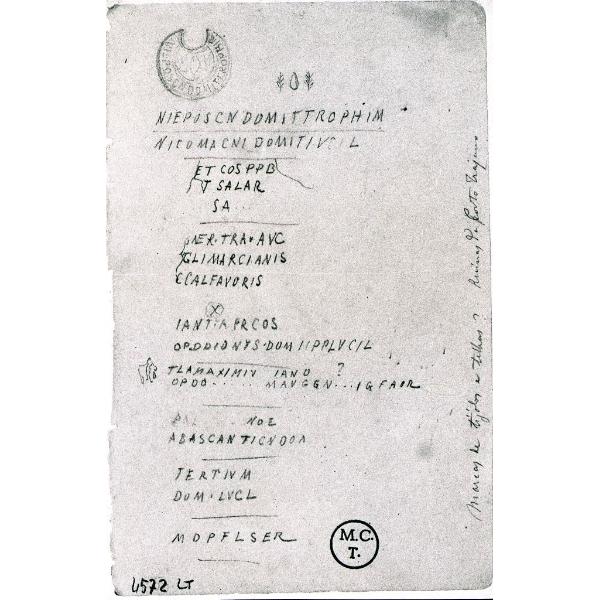 NIEPOSCN DOMITTROPHIM
NICOMACNI DOMITIVCIL
ET COS PPB
T SALAR
SA
NER·TRA·AVC
GLIMARCIANIS
CCALFAVORIS
X
IANTIAPRCOS
OPDDIONYS·DOMIIPPLVCIL
TLAMAXIMIV IANO ?
OPDO..... MAVGGN...IGFAOR
NOE
ABASCANTICNDOA
TERTIVM
DOM·LVCL
MOPFLSER
M.C.
T.
4572 LT
Marcas de tijolos e telhas? Ruinas de Porto Trajano